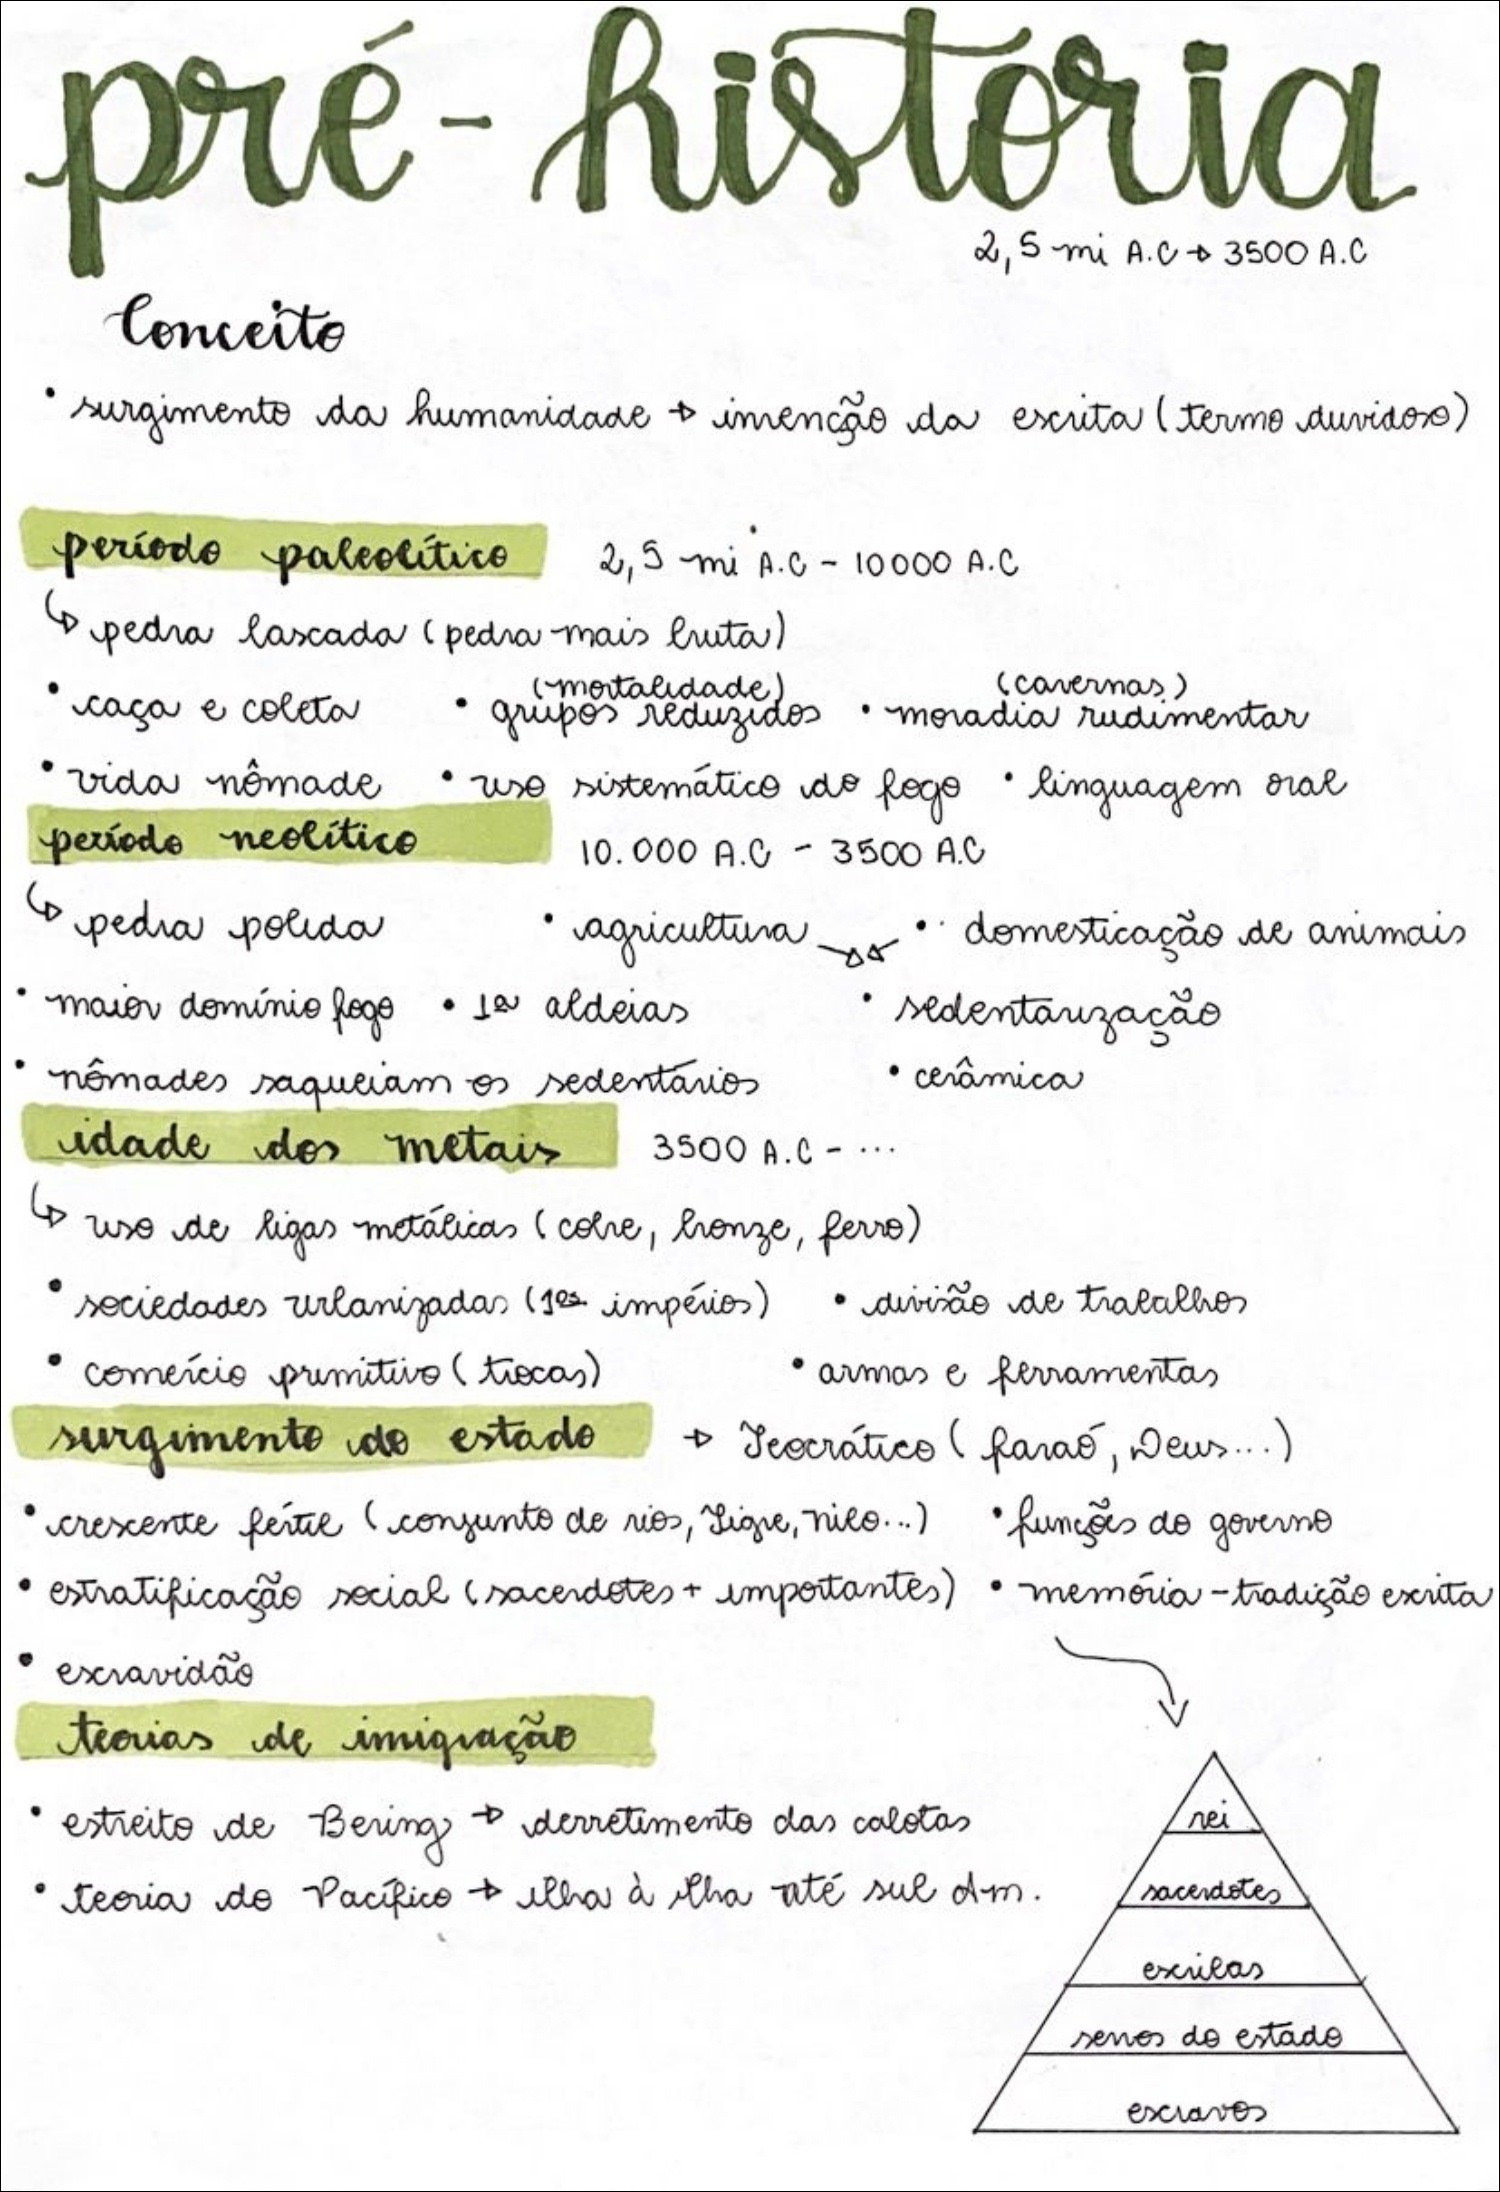 pré-história
2,5 mi A.C → 3500 A.C
Conceito
• surgimento da humanidade → invenção da escrita (termo duvidoso)
período paleolítico 2,5 mi A.C - 10000 A.C
↳ pedra lascada (pedra mais bruta)
(mortalidade) (cavernas)
• caça e coleta • grupos reduzidos • moradia rudimentar
• vida nômade • uso sistemático do fogo • linguagem oral
período neolítico 10.000 A.C - 3500 A.C
↳ pedra polida • agricultura • domesticação de animais
• maior domínio fogo • 1ª aldeias • sedentarização
• nômades saqueiam os sedentários • cerâmica
idade dos metais 3500 A.C - ...
↳ uso de ligas metálicas (cobre, bronze, ferro)
• sociedades urbanizadas (1ºs impérios) • divisão de trabalhos
• comércio primitivo (trocas) • armas e ferramentas
surgimento do estado → Teocrático (faraó, Deus...)
• crescente fértil (conjunto de rios, Tigre, nilo...) • funções do governo
• estratificação social (sacerdotes + importantes) • memória - tradição escrita
• escravidão
teorias de imigração
• estreito de Bering → derretimento das calotas
• teoria do Pacífico → ilha à ilha até sul Am.
rei
sacerdotes
escribas
servos do estado
escravos